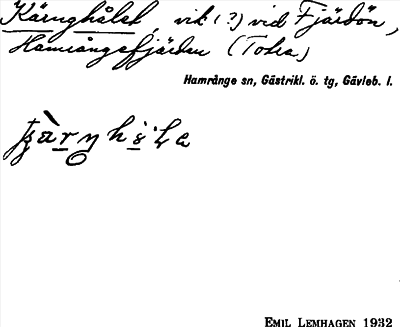 Kärnghålet, vik (?) vid Fjärdön,
Hamrångefjärden (Tolra)
Hamrånge sn, Gästrikl. ö. tg, Gävleb. l.
EMIL LEMHAGEN 1932